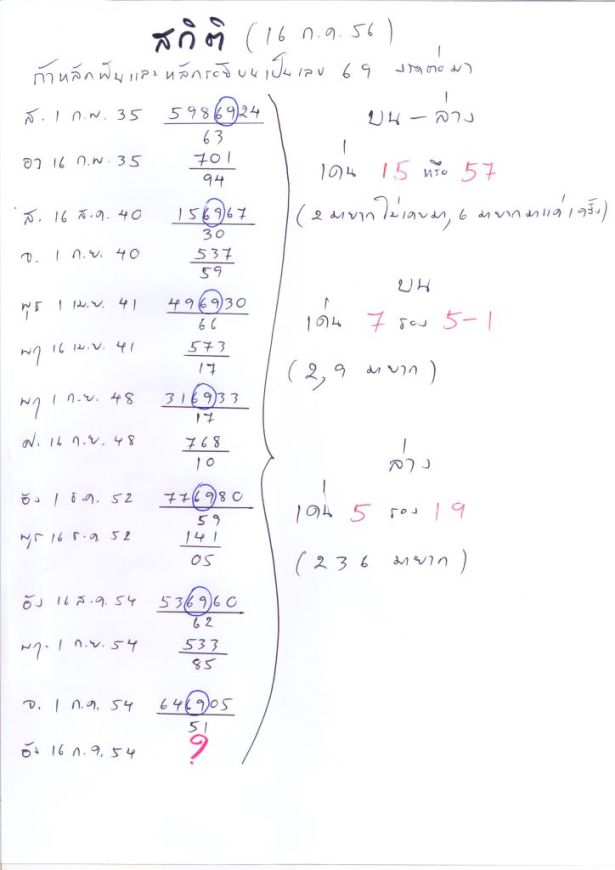 สถิติ (16 ก.ค. 56)
ถ้าหลักพันและหลักร้อยบนเป็นเลข 69 งวดต่อมา
ส. 1 ก.พ. 35 5986924
63
อา 16 ก.พ. 35 701
94
ส. 16 ส.ค. 40 156967
30
จ. 1 ก.ย. 40 537
59
พุธ 1 เม.ย. 41 496930
66
พฤ 16 เม.ย. 41 573
17
พฤ 1 ก.ย. 48 316933
17
ศ. 16 ก.ย. 48 768
10
อัง 1 ธ.ค. 52 776980
59
พุธ 16 ธ.ค 52 141
05
อัง 16 ส.ค. 54 536960
62
พฤ. 1 ก.ย. 54 533
85
จ. 1 ก.ค. 54 646905
51
อัง 16 ก.ค. 54 ?
บน – ล่าง
เด่น 15 หรือ 57
(2 มายาก ไม่เคยมา, 6 มายากมาแค่ 1 ครั้ง)
บน
เด่น 7 รอง 5-1
(2, 9 มายาก)
ล่าง
เด่น 5 รอง 19
(2 3 6 มายาก)